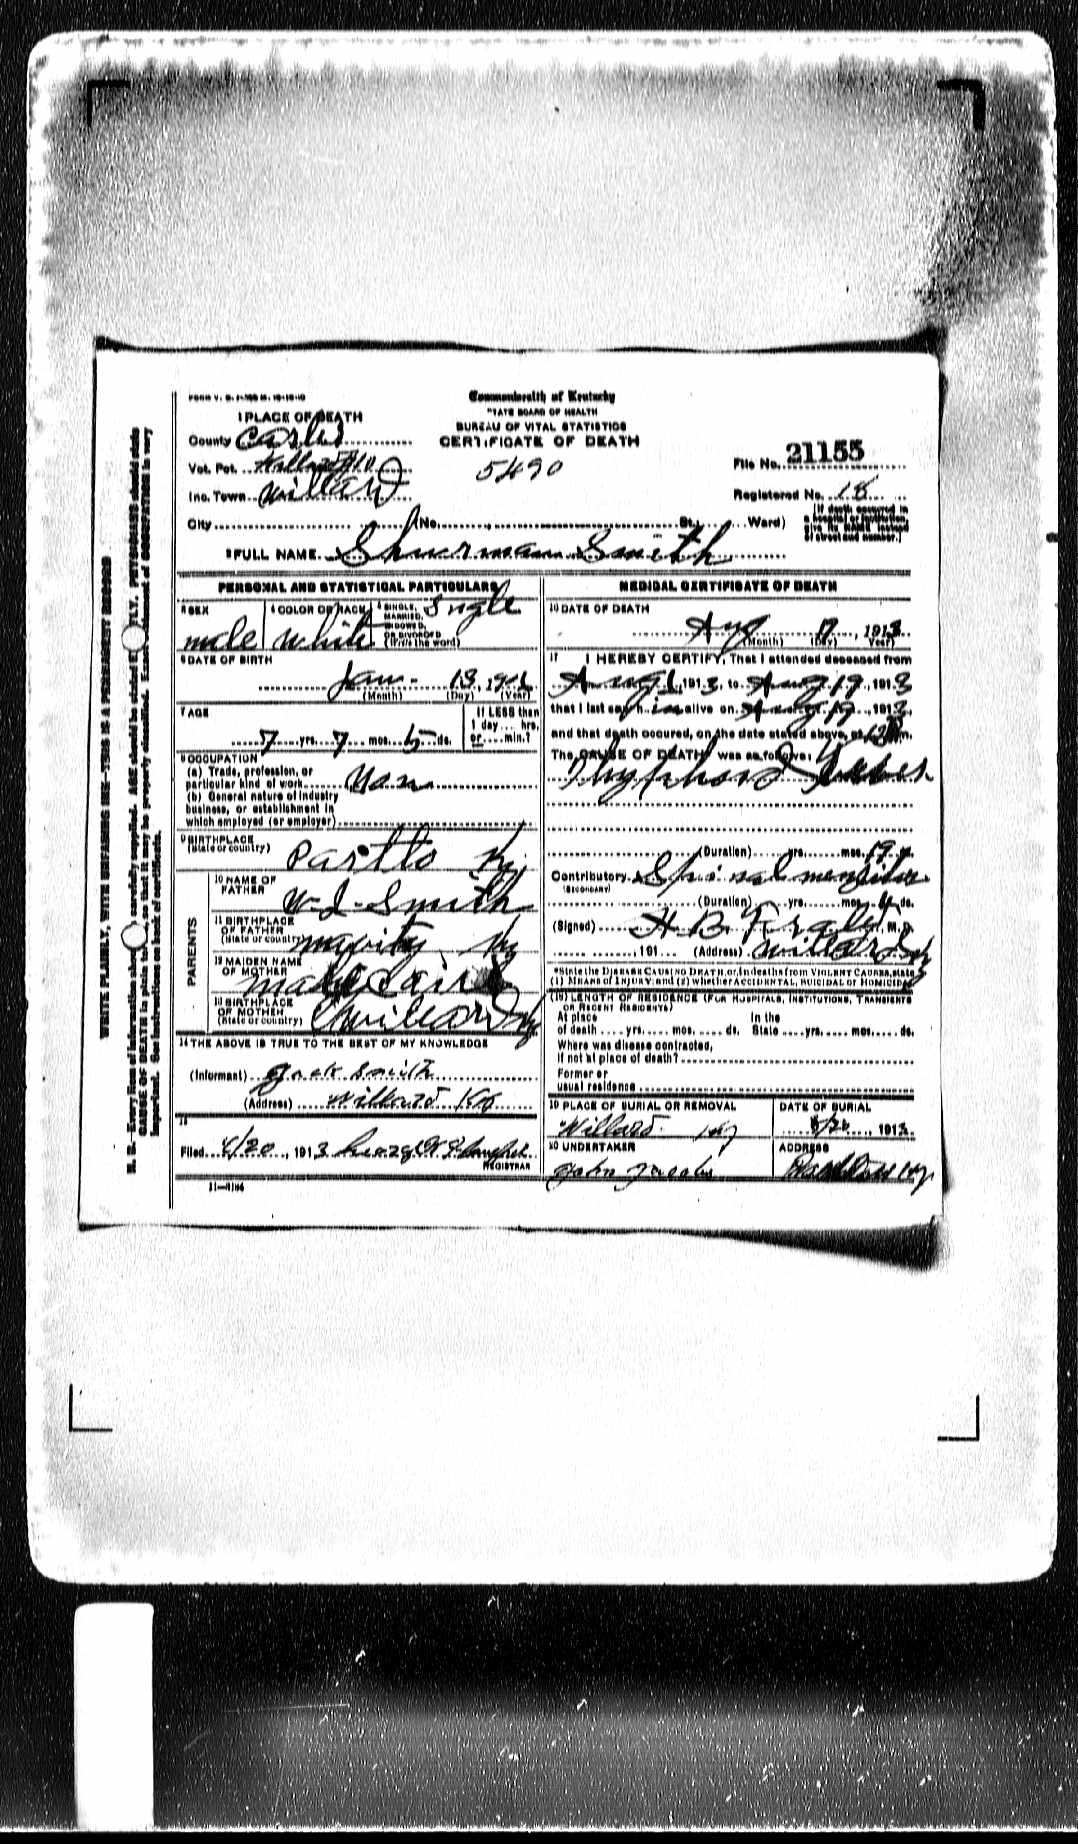 Commonwealth of Kentucky
1 PLACE OF DEATH
TATE BOARD OF HEALTH
BUREAU OF VITAL STATISTICS
County Carter
CERTIFICATE OF DEATH
Vot. Pct. Willard #10
5490
File No. 21155
Inc. Town Willard
Registered No. 18
City (No. St., Ward)
(If death occurred in
a hospital or institution,
give its NAME instead
of street and number.)
2 FULL NAME Shuermann Smith
PERSONAL AND STATISTICAL PARTICULARS
3 SEX male
4 COLOR OR RACE white
5 SINGLE, MARRIED, WIDOWED, OR DIVORCED (Write the word) Single
6 DATE OF BIRTH
Jan. 13, 19
(Month) (Day) (Year)
7 AGE
7 yrs. 7 mos. 5 ds.
If LESS than
1 day hrs.
or min.?
8 OCCUPATION
(a) Trade, profession, or
particular kind of work
(b) General nature of industry
business, or establishment in
which employed (or employer)
9 BIRTHPLACE
(State or country) Ky
PARENTS
10 NAME OF
FATHER W. J. Smith
11 BIRTHPLACE
OF FATHER
(State or country) Ky
12 MAIDEN NAME
OF MOTHER
13 BIRTHPLACE
OF MOTHER
(State or country) Willard Ky
14 THE ABOVE IS TRUE TO THE BEST OF MY KNOWLEDGE
(Informant) Jack Smith
(Address) Willard Ky
15
Filed /20, 1913
REGISTRAR
11—3184
MEDICAL CERTIFICATE OF DEATH
16 DATE OF DEATH
Aug 1913
(Month) (Day) (Year)
17 I HEREBY CERTIFY, That I attended deceased from
Aug 1, 1913, to Aug 19, 1913
that I last saw him alive on Aug 19, 1913,
and that death occured, on the date stated above, at 12 m.
The CAUSE OF DEATH was as follows:
(Duration) yrs. mos. 19
Contributory Spinal
(SECONDARY)
(Duration) yrs. mos. ds.
(Signed) H B M.D.
191 (Address) Willard Ky
*State the DISEASE CAUSING DEATH, or, in deaths from VIOLENT CAUSES, state
(1) MEANS of INJURY; and (2) whether ACCIDENTAL, SUICIDAL or HOMICIDAL
(18) LENGTH OF RESIDENCE (FOR HOSPITALS, INSTITUTIONS, TRANSIENTS
OR RECENT RESIDENTS)
At place In the
of death yrs. mos. ds. State yrs. mos. ds.
Where was disease contracted,
if not at place of death?
Former or
usual residence
19 PLACE OF BURIAL OR REMOVAL
Willard Ky
DATE OF BURIAL
8/20, 1913
20 UNDERTAKER
John Jacobs
ADDRESS
Ky
WRITE PLAINLY, WITH UNFADING INK—THIS IS A PERMANENT RECORD
N. B.—Every item of information should be carefully supplied. AGE should be stated EXACTLY. PHYSICIANS should state
CAUSE OF DEATH in plain terms, so that it may be properly classified. Exact statement of OCCUPATION is very
important. See instructions on back of certificate.